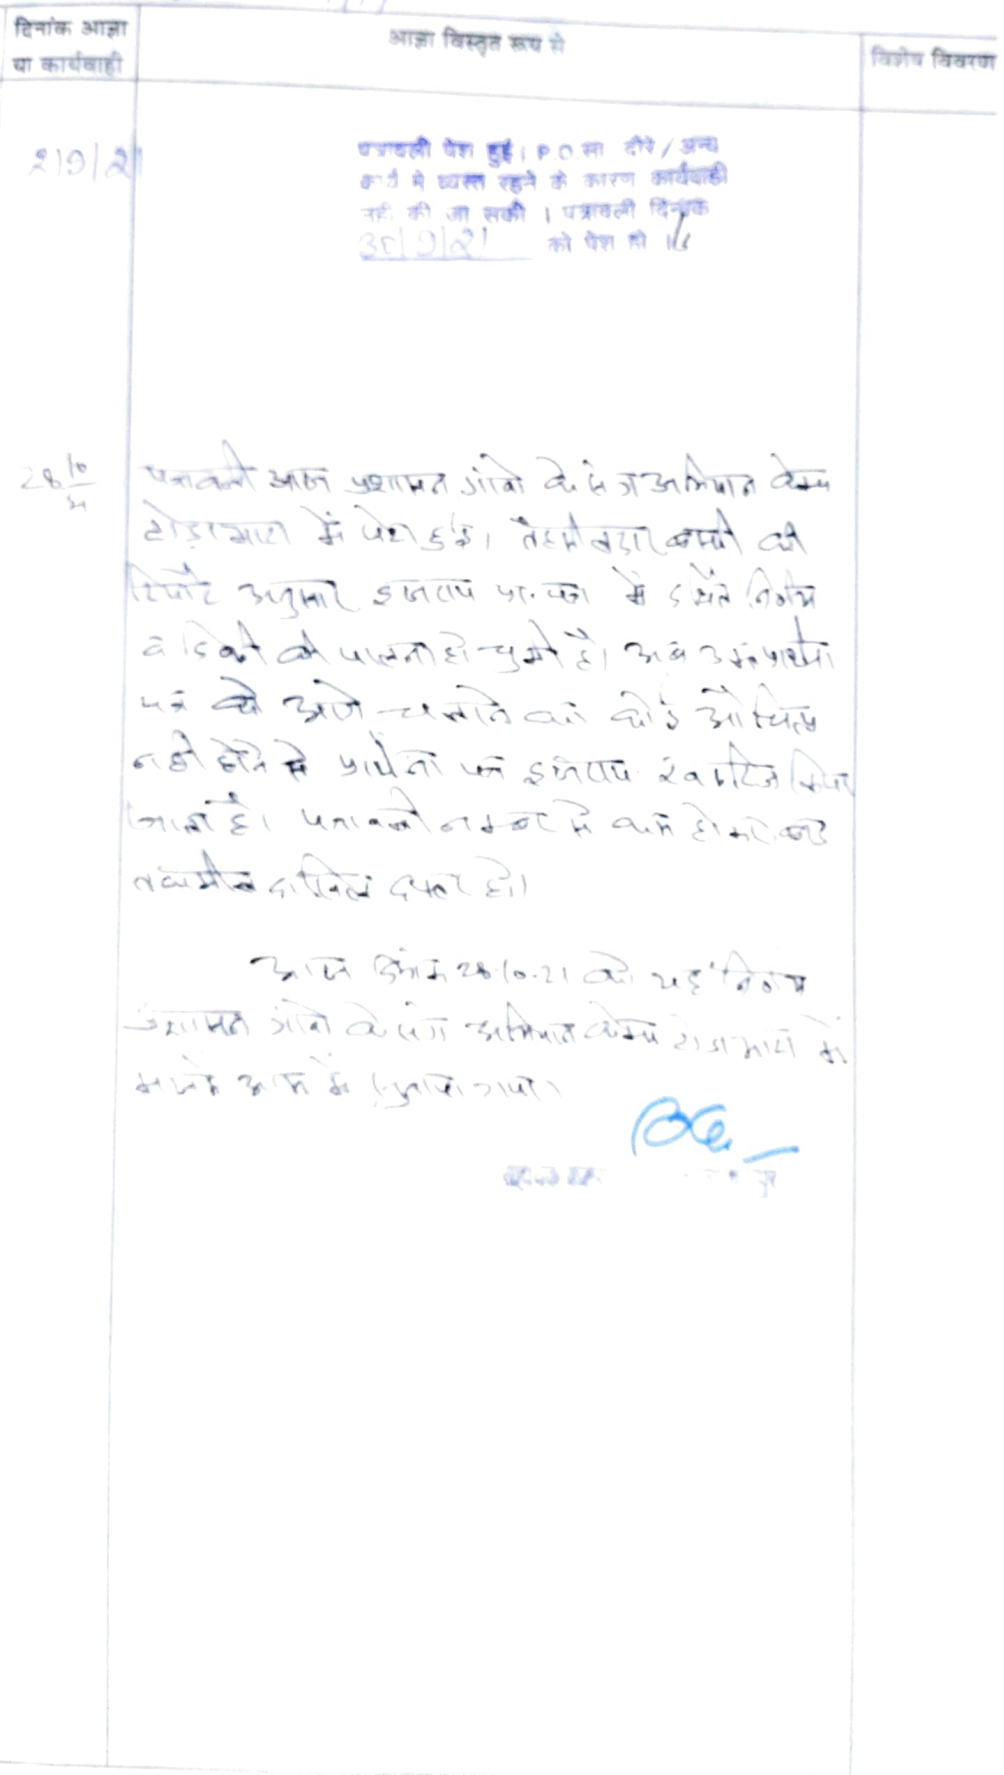 दिनांक आज्ञा
या कार्यवाही
आज्ञा विस्तृत रूप से
विशेष विवरण
2/9/21
पत्रावली पेश हुई। P.O. सा दौरे/अन्य
कार्य मे व्यस्त रहने के कारण कार्यवाही
नही की जा सकी । पत्रावली दिनांक
30/9/21 को पेश हो
28/10
पत्रावली आज प्रशासन गांवो के संग अभियान केम्प
टोडाभाटा में पेश हुई। तहसीलदार की
रिपोर्ट अनुसार इजराय प्रा. पत्र में वर्णित निर्णय
व डिक्री की पालना हो चुकी है। अब उक्त प्रार्थना
पत्र को आगे चलाने का कोई औचित्य
नही होने से प्रार्थना पत्र इजराय खारिज किया
जाता है। पत्रावली नम्बर से कम होकर बाद
तकमील दाखिल दफ्तर हो।
आज दिनांक 28.10.21 को यह निर्णय
प्रशासन गांवो के संग अभियान केम्प टोडाभाटा में
मजमे आम में सुनाया गया।